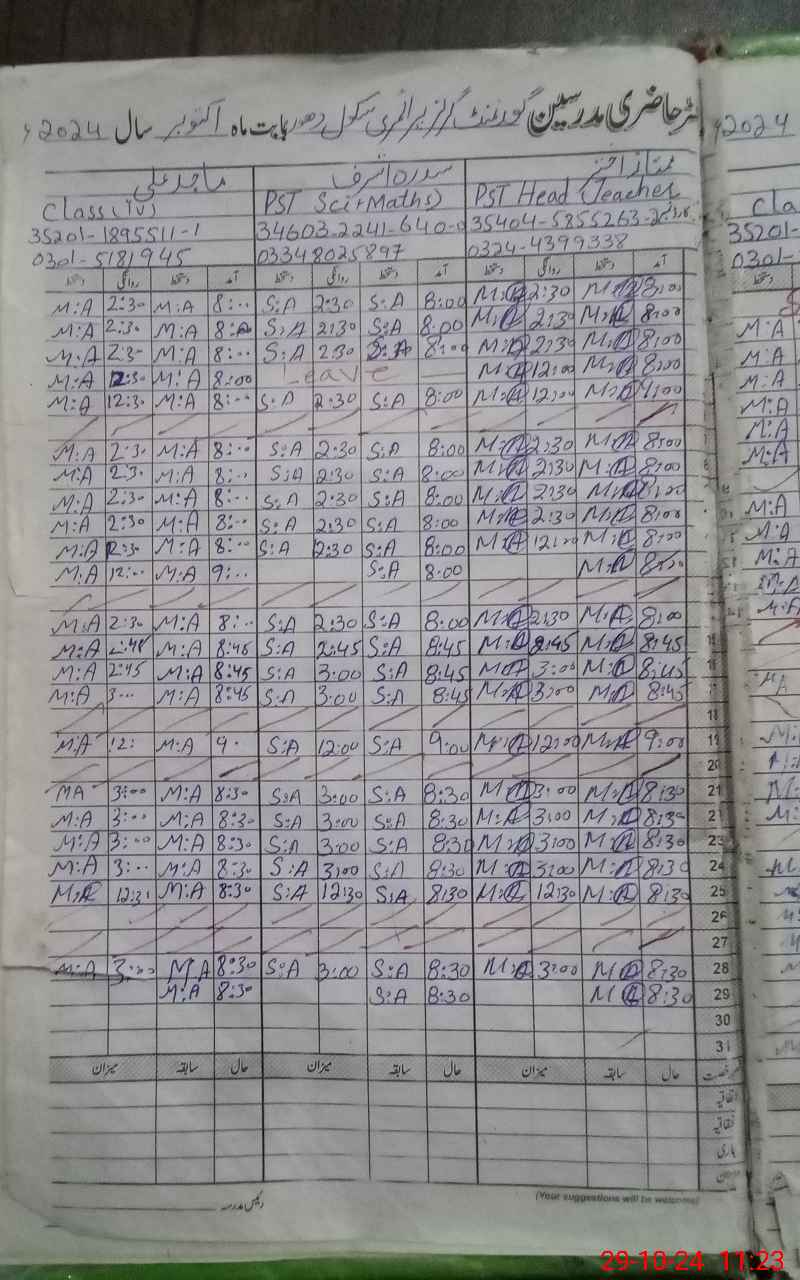 رجسٹر حاضری مدرسین گورنمنٹ گرلز پرائمری سکول بابت ماہ اکتوبر سال 2024ء
ماجد علی سدرہ اشرف ممتاز اختر
Class (IV) PST Sci+Maths) PST Head Teacher
35201-1895511-1 34603-2241-640- 35404-5855263-2
0301-5181945 03348025897 0324-4399338
دستخط روانگی دستخط آمد دستخط روانگی دستخط آمد دستخط روانگی دستخط آمد
M:A 2:30 M:A 8:.. S:A 2:30 S:A 8:00 M:A 2:30 M:A 8:00
M:A 2:30 M:A S:A 2:30 S:A 8:00 M:A 2:30 M:A 8:00
M:A 2:30 M:A 8:.. S:A 2:30 S:A 8:00 M:A 2:30 M:A 8:00
M:A 12:30 M:A 8:00 Leave M:A 12:00 M:A 8:00
M:A 12:30 M:A 8:.. S:A 2:30 S:A 8:00 M:A 12:00 M:A
M:A 2:30 M:A 8:.. S:A 2:30 S:A 8:00 M:A 2:30 M:A 8:00
M:A 2:30 M:A 8:.. S:A 2:30 S:A 8:00 M:A 2:30 M:A 8:00
M:A 2:30 M:A 8:.. S:A 2:30 S:A 8:00 M:A 2:30 M:A 8:00
M:A 2:30 M:A 8:.. S:A 2:30 S:A 8:00 M:A 2:30 M:A 8:00
M:A 12:30 M:A 8:.. S:A 2:30 S:A 8:00 M:A 12:00 M:A 8:00
M:A 12:.. M:A 9:.. S:A 8:00 M:A
M:A 2:30 M:A 8:.. S:A 2:30 S:A 8:00 M:A 2:30 M:A 8:00
M:A 2:45 M:A 8:45 S:A 2:45 S:A 8:45 M:A 2:45 M:A 8:45
M:A 2:45 M:A 8:45 S:A 3:00 S:A 8:45 M:A 3:00 M:A 8:45
M:A 3... M:A 8:45 S:A 3:00 S:A 8:45 M:A 3:00 M:A 8:45
18
M:A 12: M:A 9. S:A 12:00 S:A 9:00 M:A 12:00 M:A 9:00 19
20
MA 3:00 M:A 8:30 S:A 3:00 S:A 8:30 M:A 3:00 M:A 8:30 21
M:A 3:.. M:A 8:30 S:A 3:00 S:A 8:30 M:A 3:00 M:A 8:30
M:A 3:.. M:A 8:30 S:A 3:00 S:A 8:30 M:A 3:00 M:A 8:30 23
M:A 3:.. M:A 8:30 S:A 3:00 S:A 8:30 M:A 3:00 M:A 8:30 24
M:A 12:3 M:A 8:30 S:A 12:30 S:A 8:30 M:A 12:30 M:A 8:30 25
26
27
M:A 3:00 M.A 8:30 S:A 3:00 S:A 8:30 M:A 3:00 M:A 8:30 28
M:A 8:30 S:A 8:30 M:A 8:30 29
30
31
میزان سابقہ حال میزان سابقہ حال میزان سابقہ حال رخصت
اتفاقیہ
بیماری
رئیس مدرسہ
(Your suggestions will be welcome)
2024
Cla
35201-
0301-
M:A
M:A
M:A
M:A
M:A
M:A
M:A
M:A
M:A
M:A
29-10-24 11:23